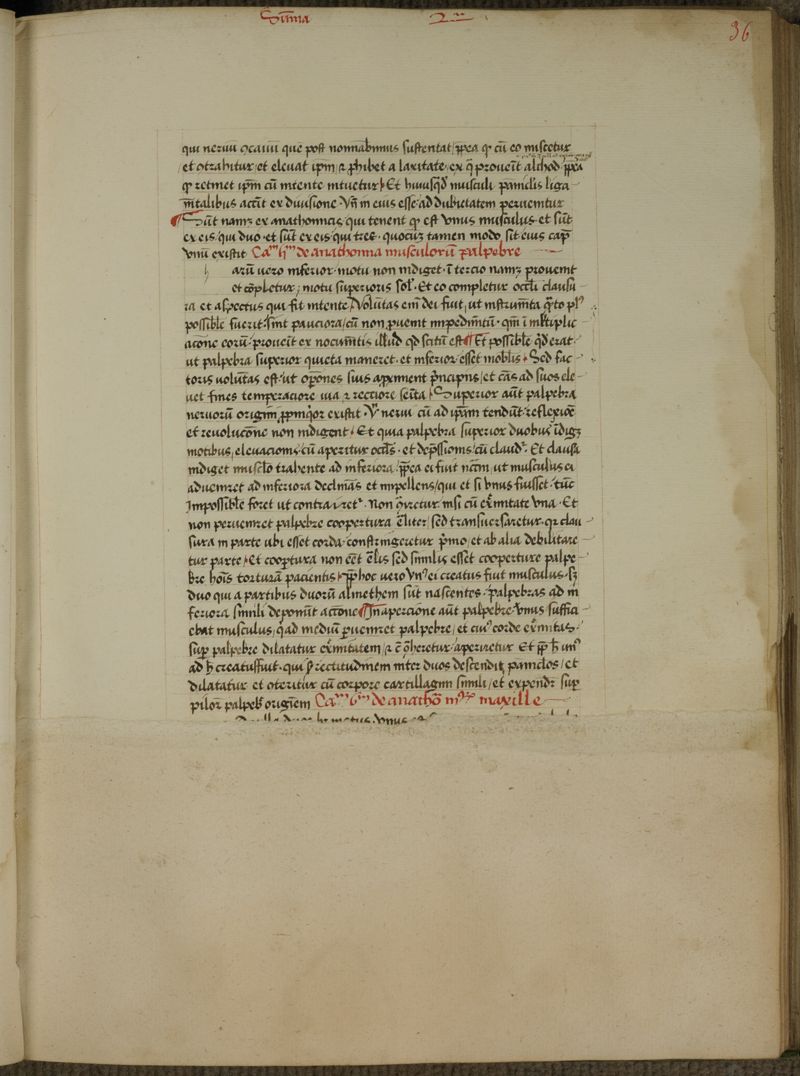 Su̅ma 2ᵃ
36
qui nerui ocaiui que post nominabimus sustentat, ꝓpea qꝫ cu̅ eo miscetur
et ot̅rahitur et eleuat ip̅m, ⁊ ꝓhibet a laxitate ex q̅ proueit̅ alchod ꝓpea
qꝫ retinet ip̅m cu̅ intente intuetur. Et huiusq̅d musculi panniculis liga
m̅talibus act̅ti ex diuisione. Vn̅ in eius esse ad dubietatem peruenitur
Su̅t namqꝫ ex anathomicis, qui tenent qꝫ est vnus musculus et su̅t
ex eis, qui duo et su̅t ex eis qui tres. quocu̅qꝫ tamen modo sit eius cap̅
vnu̅ existit Caᵐ de anathomia musculoru̅ palpebre
aru̅ uero inferior motu non indiget. i̅ tercio namqꝫ prouenit
et co̅pletur, motu superioris sol̅. Et eo completur oculi clausu
ra et aspectus qui fit intente. Volu̅tas eni̅ dei fuit, ut instrum̅ta q̅to pl᷒
possibile fuerit, sint pauciora, cu̅ non ꝓuenit impedim̅tu̅. qm̅ i̅ multiplic
acione eoru̅ proueit̅ ex nocum̅tis illud qd̅ scitu̅ est. Et possibile q̅d erat
ut palpebra superior quieta maneret. et inferior esset mobilis. Sed fac
toris volu̅tas est ut op̅ones suis apent̅ment p̅ncipiis, et ca̅s ad suos ele
uet fines temperaciore uia ⁊ rectiore semita. Superior au̅t palpebra
neruoru̅ origini ꝓpinq̅or existit. Vn̅ nerui cu̅ ad ipa̅m tendu̅t reflexioe̅
et reuolucone̅ non indigent. Et quia palpebra superior duobus i̅diget
motibus, eleuacionis cu̅ aperitur oculus. et dep̅ssionis cu̅ claudi̅. Et clausu̅
indiget musculo trahente ad inferiora, ꝓpea ei fuit nc̅m, ut musculus ei
adueniret ad inferiora declina̅s et impellens, qui et si vnus fuisset tu̅c
Impossibile foret ut contrairet. Non q̅iretur nisi cu̅ ex̅mitate vna. Et
non perueniret palpebre coopertura eq̅liter, sed transuersaretur. qꝛ clau
sura in parte ubi esset corda constringeretur p̅mo, et ab alia debilitare
tur parte. Et coopertura non ee̅t eq̅lis sed similis esset cooperture palpe
bre ho̅is tortura̅ pacientis. ꝓp hoc uero vn᷒ ei creatus fuit musculus. sꝫ
duo qui a partibus duoru̅ almethem su̅t nascentes. palpebras ad in
feriora simili deponu̅t actione. In apercione au̅t palpebre vnus suffici
ebat musculus, q̅ ad mediu̅ ꝑueniret palpebre, et cui᷒ corde ex̅mitas
sup̅ palpebre dilatatur ex̅mitatem, ⁊ cu̅ q̅hieretur, aperiretur. Et ꝓp̅ h̅ un᷒
ad h̅ creatus fuit. qui ꝑ rectitudinem inter duos descendit panniculos, et
dilatatur et oteritur cu̅ corpore cartillagini simili, et expendit̅ sup̅
pilor̅ palpebre origine̅ Caᵐ de anatho̅ maxille